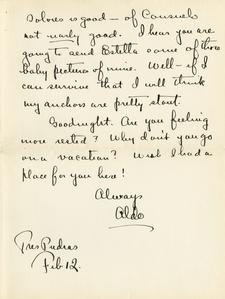 Dolores is good – of Consuelo
not nearly good. I hear you are
going to send Estella some of those
baby pictures of mine. Well – if I
can survive that I will think
my anchors are pretty stout.
Goodnight. Are you feeling
more rested? Why don't you go
on a vacation? Wish I had a
place for you here!
Always
Aldo
Tres Piedras
Feb. 12.